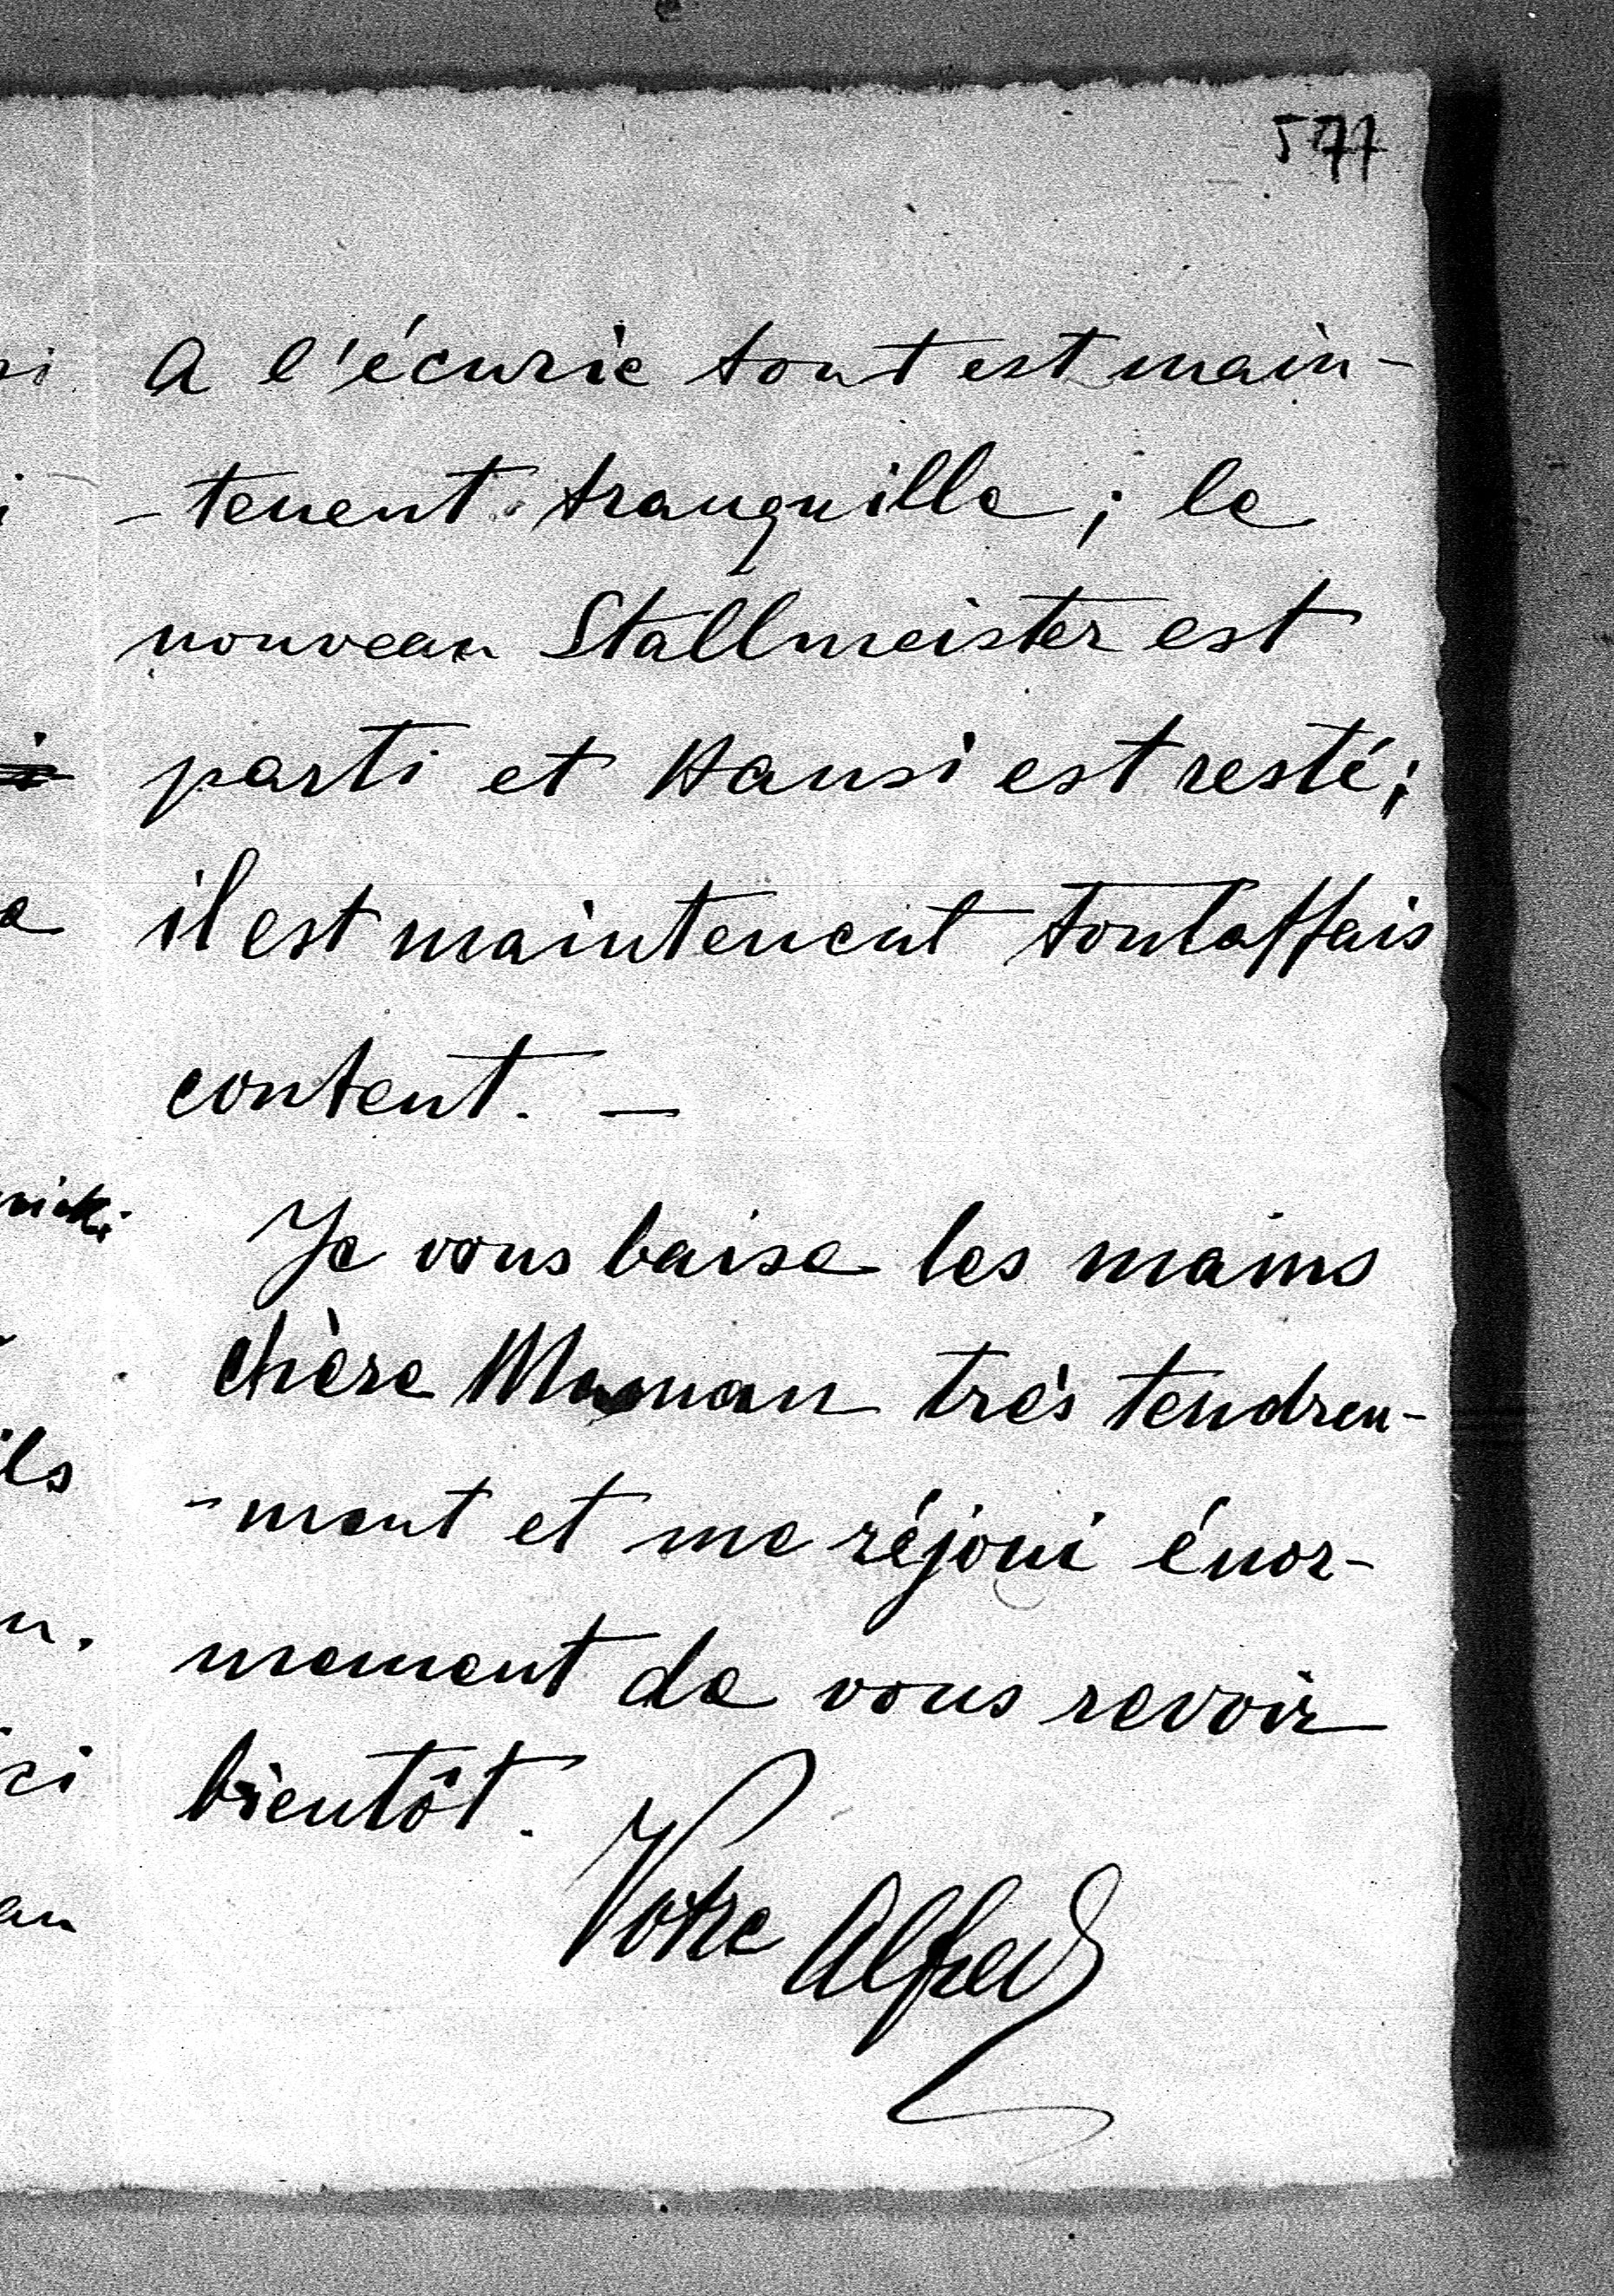 577
A l'écurie tout est main-
-tenent tranquille; le
nouveau Stallmeister est
parti et Hansi est resté;
il est maintenent toutaffais
content. —
Je vous baise les mains
chère Maman très tendren-
-ment et me réjoui énor-
mement de vous revoir
bientôt.
Votre Alfred